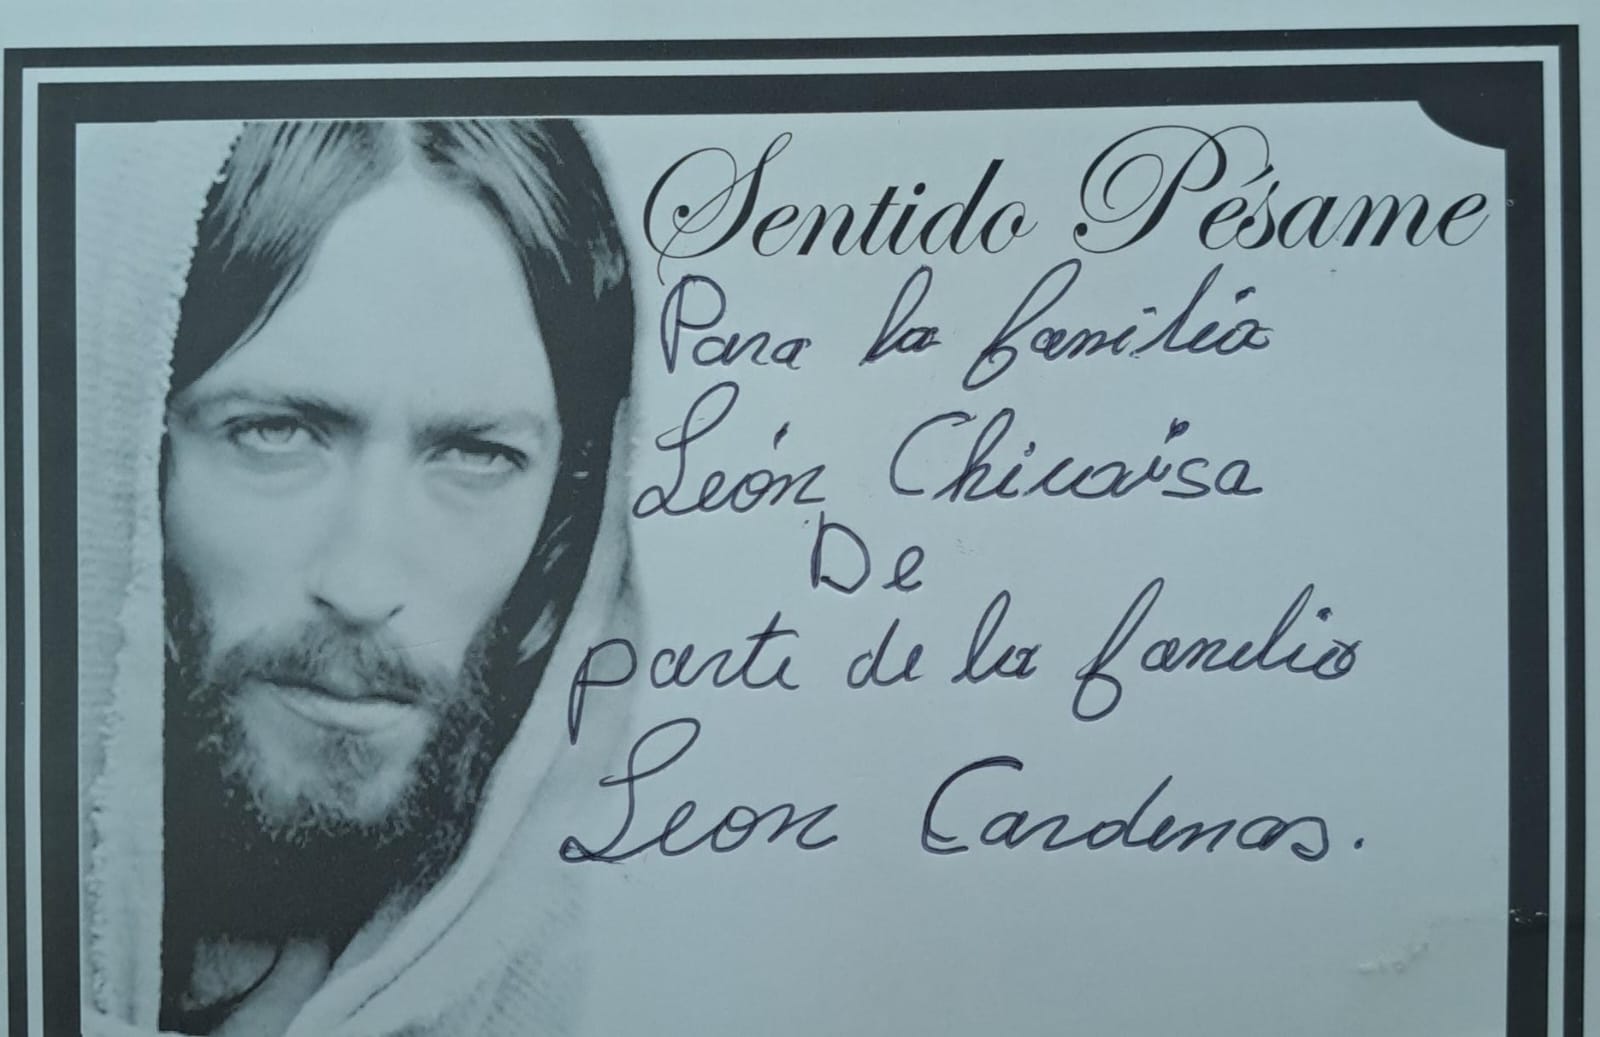 Sentido Pésame
Para la familia
León Chicaisa
De
parte de la familia
Leon Cardenas.